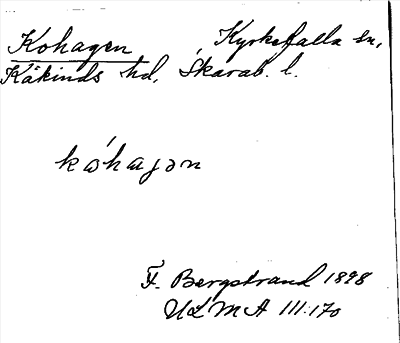 Kohagen Kyrkefalla sn,
Kåkinds hd, Skarab. l.
kớhagən
F. Bergstrand 1898
ULMA III:170